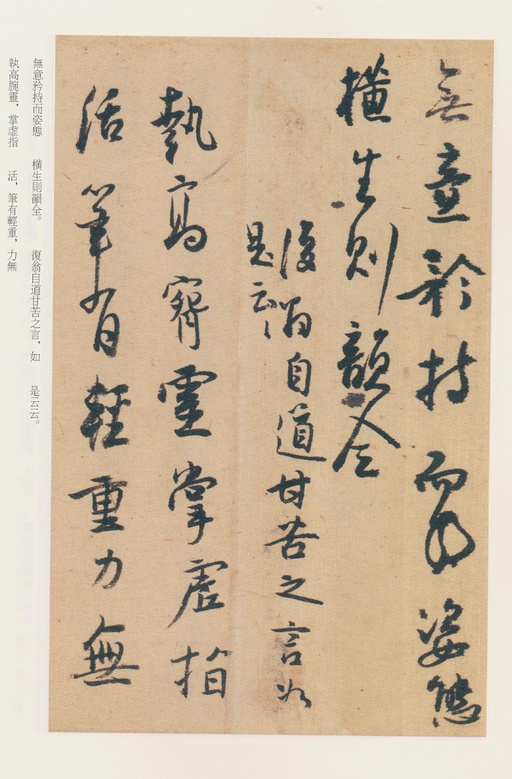 無意矜持而姿態
橫生則韻全
復翁自道甘苦之言如
是云云
執寫腕靈掌虛指
活筆有輕重力無
無意矜持而姿態　橫生則韻全。　復翁自道甘苦之言，如　是云云。
執高腕靈，掌虛指　活，筆有輕重，力無